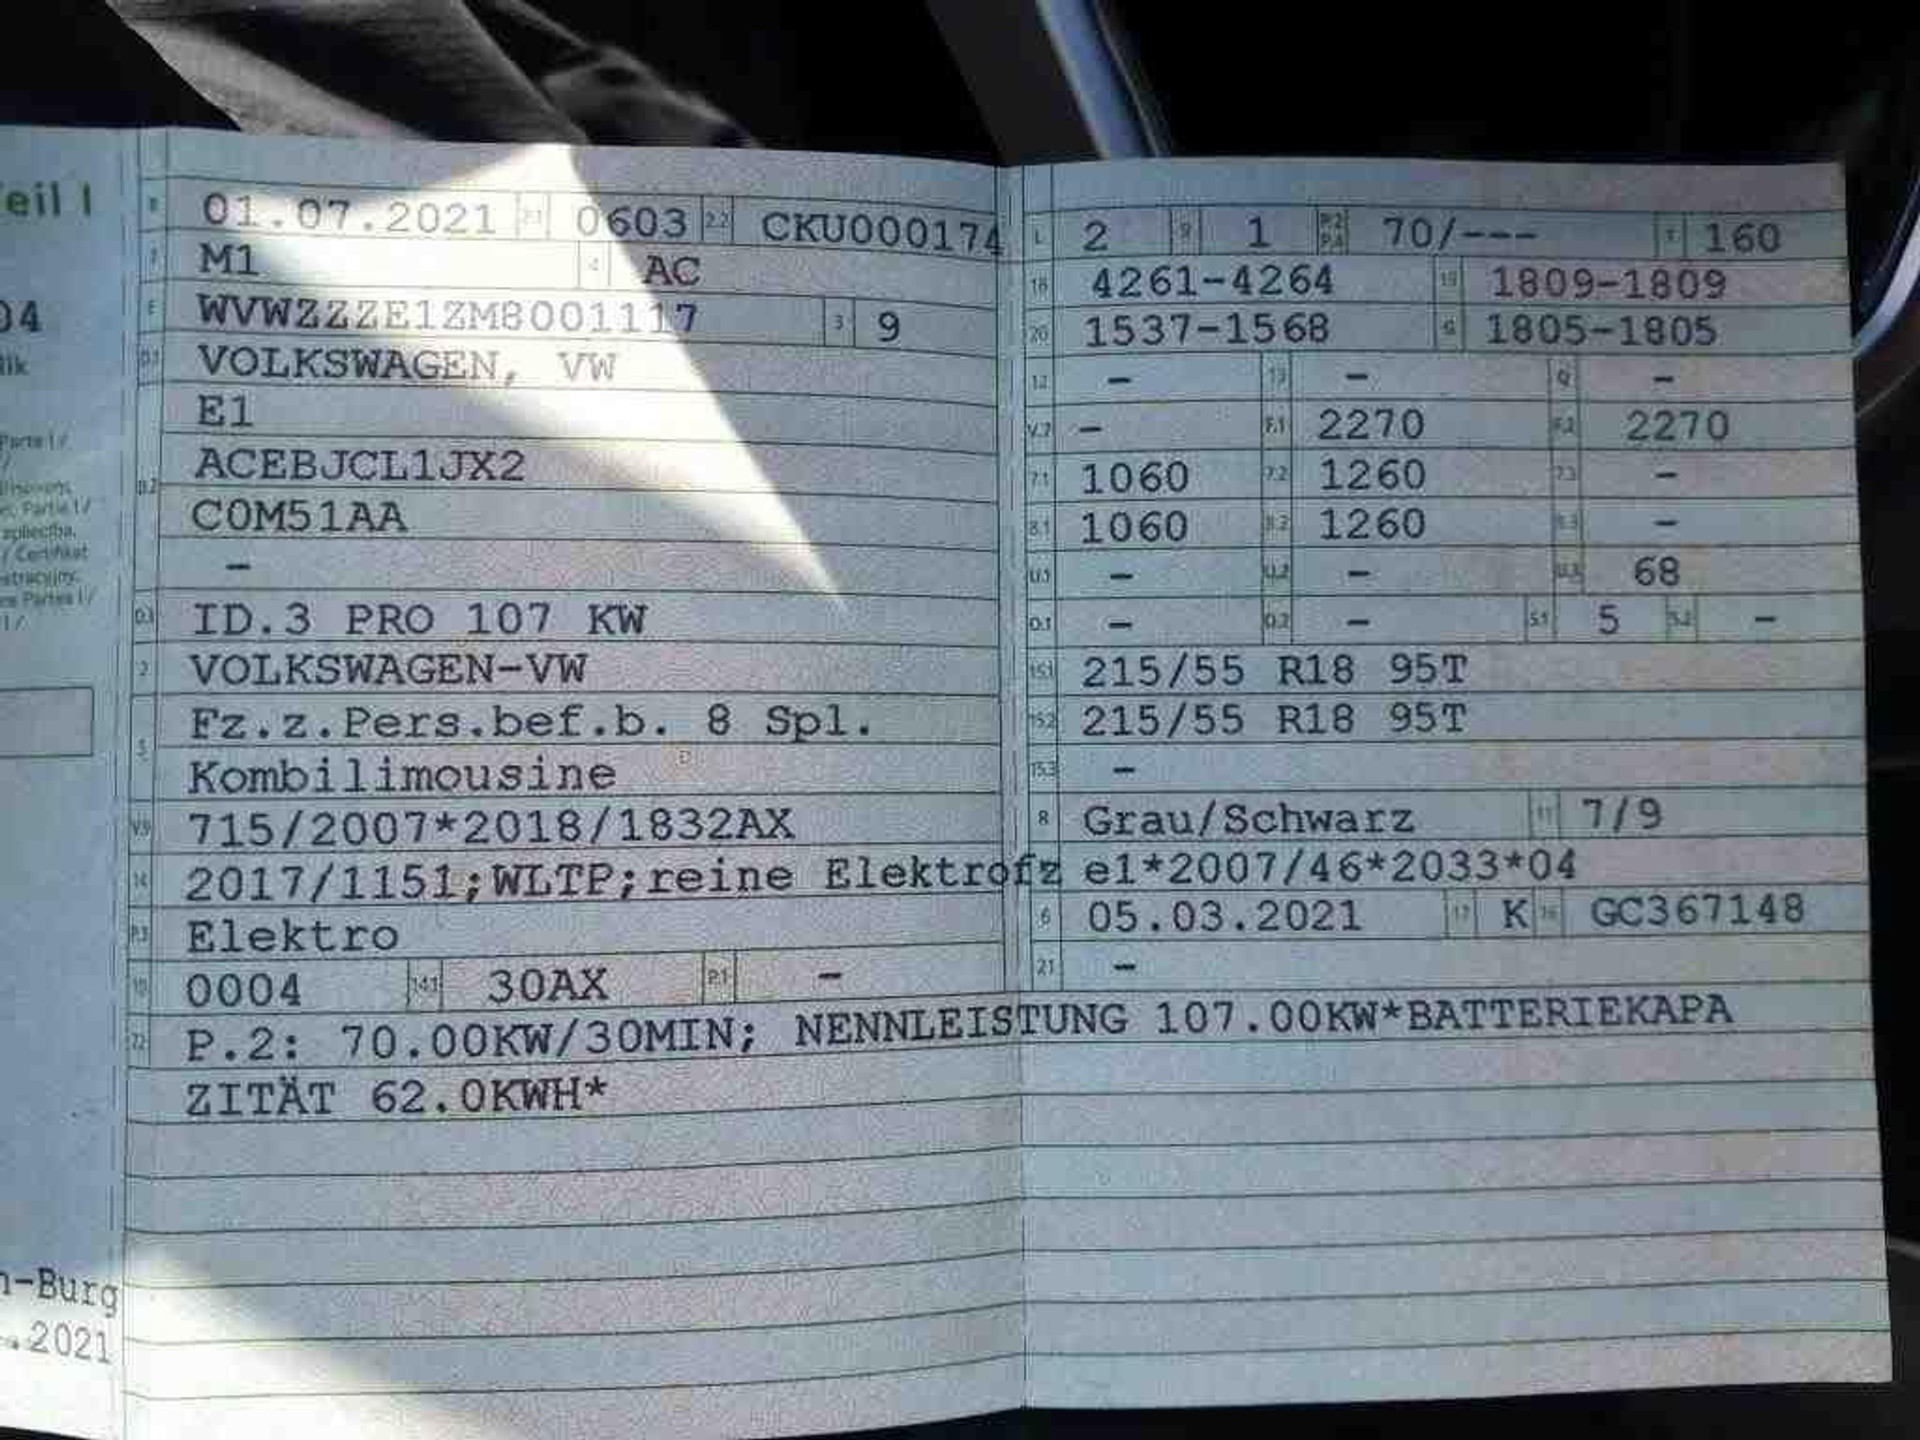 eil I
04
lik
Parte I /
n-Burg
.2021
B 01.07.2021 2.1 0603 2.2 CKU000174
J M1 4 AC
E WVWZZZE1ZM8001117 3 9
D.1 VOLKSWAGEN, VW
E1
D.2 ACEBJCL1JX2
C0M51AA
–
D.3 ID.3 PRO 107 KW
2 VOLKSWAGEN-VW
5 Fz.z.Pers.bef.b. 8 Spl.
Kombilimousine
V.9 715/2007*2018/1832AX
14 2017/1151;WLTP;reine Elektrofz
P.3 Elektro
10 0004 14.1 30AX P.1 –
22 P.2: 70.00KW/30MIN; NENNLEISTUNG 107.00KW*BATTERIEKAPA
ZITÄT 62.0KWH*
L 2 9 1 P.2 P.4 70/--- T 160
18 4261-4264 19 1809-1809
20 1537-1568 G 1805-1805
12 – 13 – Q –
V.7 – F.1 2270 F.2 2270
7.1 1060 7.2 1260 7.3 –
8.1 1060 8.2 1260 8.3 –
U.1 – U.2 – U.3 68
O.1 – O.2 – S.1 5 S.2 –
15.1 215/55 R18 95T
15.2 215/55 R18 95T
15.3 –
R Grau/Schwarz 11 7/9
e1*2007/46*2033*04
6 05.03.2021 17 K 16 GC367148
21 –